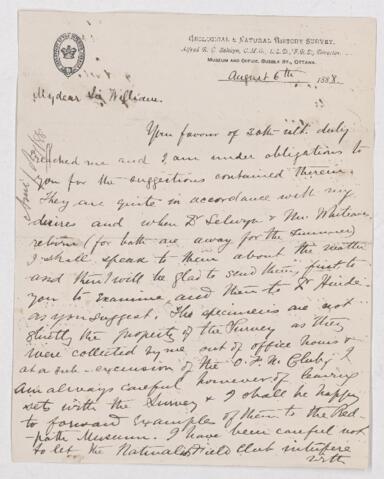 GEOLOGICAL & NATURAL HISTORY SURVEY.
Alfred R. C. Selwyn, C.M.G., LL.D., F.R.S., Director.
MUSEUM AND OFFICE, SUSSEX ST., OTTAWA.
August 6th 1888.
My dear Sir William.
Your favour of 20th ult. duly
reached me and I am under obligations to
you for the suggestions contained therein.
They are quite in accordance with my
desires and when Dr Selwyn & Mr. Whiteaves
return (for both are away for the summer)
I shall speak to them about the matter
and then I will be glad to send them first to
you to examine and then to Dr Hinde
as you suggest. The specimens are not
strictly the property of the Survey as they
were collected by me out of office hours &
at a sub-excursion of the O. F. N. Club; I
am always careful however of leaving
sets with the Survey & I shall be happy
to forward examples of them to the Red-
path Museum. I have been careful not
to let the Naturalists Field Club interfere
with